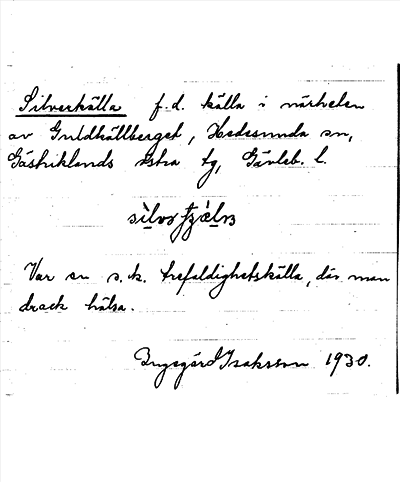 Silverkälla f.d. källa i närheten
av Guldkällberget, Hedesunda sn,
Gästriklands östra tg, Gävleb. l.
Var en s.k. trefaldighetskälla, där man
drack hälsa.
Isaksson 1930.